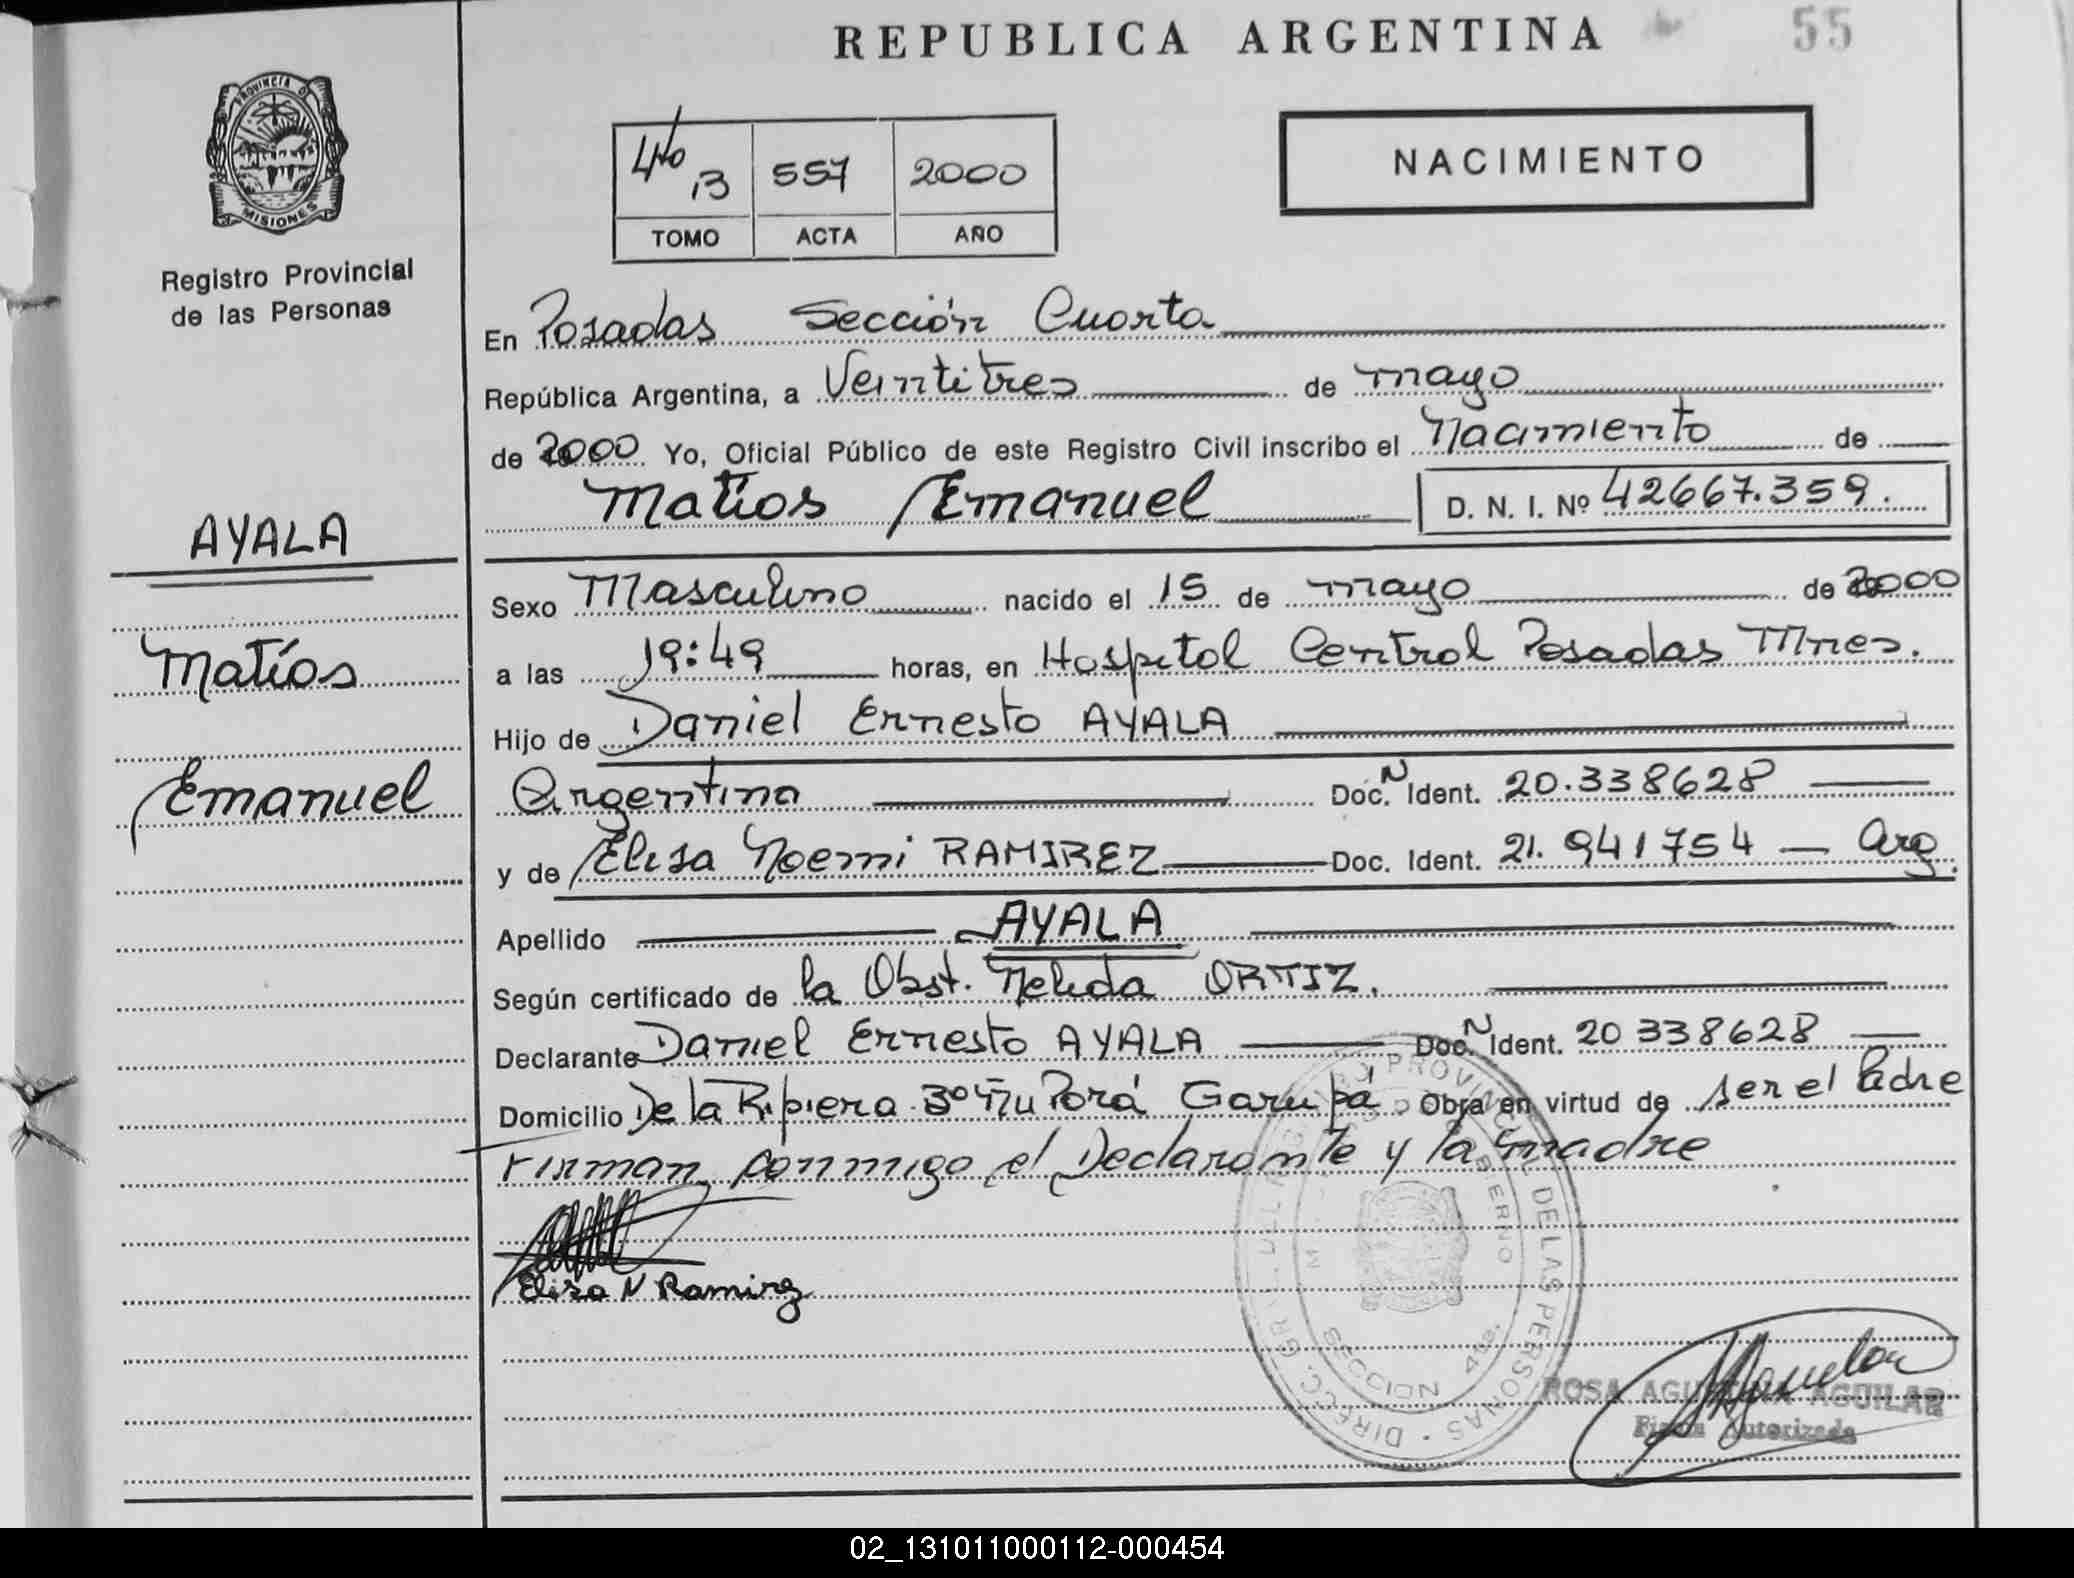 REPUBLICA ARGENTINA
55
PROVINCIA D
MISIONES
Registro Provincial
de las Personas
4to B 557 2000
TOMO ACTA AÑO
NACIMIENTO
En Posadas Sección Cuarta
República Argentina, a Veintitres de mayo
de 2000 Yo, Oficial Público de este Registro Civil inscribo el Nacimiento de
Matías Emanuel D. N. I. Nº 42667.359.
AYALA
Matías
Emanuel
Sexo Masculino nacido el 15 de mayo de 2000
a las 19:49 horas, en Hospital Central Posadas Mnes.
Hijo de Daniel Ernesto AYALA
Argentina Doc. N Ident. 20.338628
y de Elisa Noemi RAMIREZ Doc. Ident. 21.941754 — Arg.
Apellido AYALA
Según certificado de la Obst. Nelida ORTIZ.
Declarante Daniel Ernesto AYALA Doc. N Ident. 20 338628
Domicilio De la Ribiera 3º Ñu Porá Garupá Obra en virtud de ser el Padre
Firman conmigo el Declarante y la madre
Elisa N Ramirez
DIRECC. GRAL. DEL REGISTRO PROVINCIAL DE LAS PERSONAS
SECCION 4ta.
ROSA AGUILAR
Firma Autorizada
02_131011000112-000454